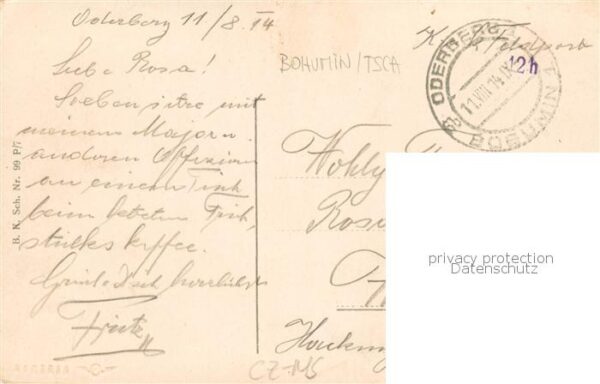 Oderberg 11/8.14
Liebe Rosa!
Soeben sitze mit
meinem Major u.
anderen Offizieren
an einem Tisch
beim letzten Früh-
stückskaffee.
Grüsst Dich herzlichst
Fritz
B. K. Sch. Nr. 99 P/7
BOHUMIN/TSCH
K. u. K. Feldpost
ODERBERG 1
11.VIII.14
12h
BOHUMIN 1
Wohlg.
Rosa
privacy protection
Datenschutz
CZ-145